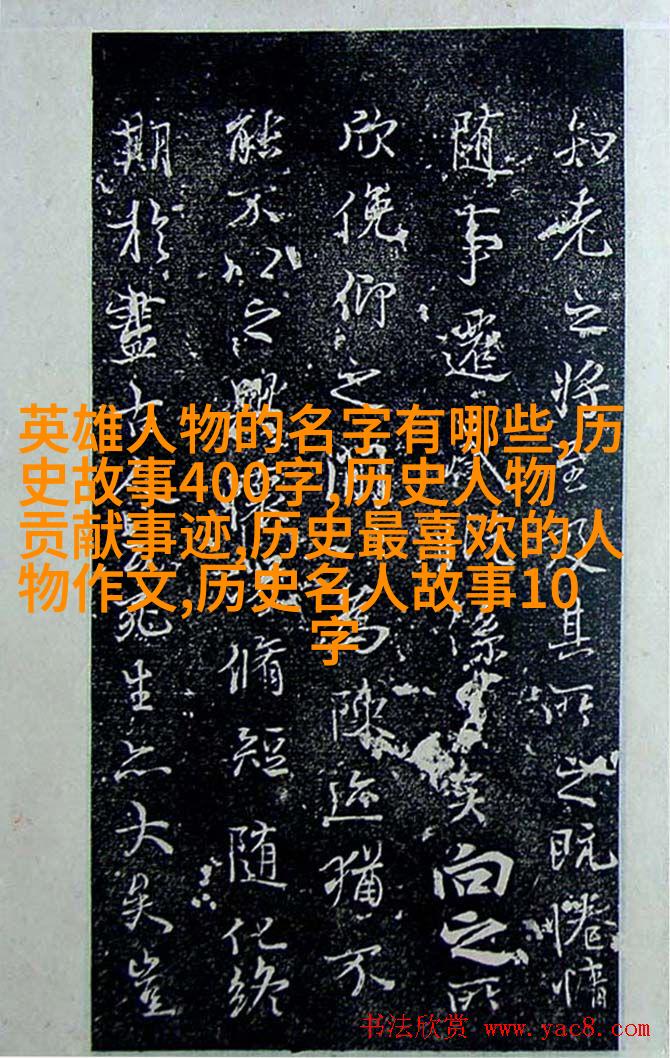 知老之將至及其所之既惓情
随事遷感係之矣向之所
欣俛仰之閒為陳迹猶不
能不以之興懷脩短随化終
期於盡古死生亦大矣豈
英雄人物的名字有哪些,历
史故事400字,历史人物
贡献事迹,历史最喜欢的人
物作文,历史名人故事10
字
书法欣赏 www.yac8.com